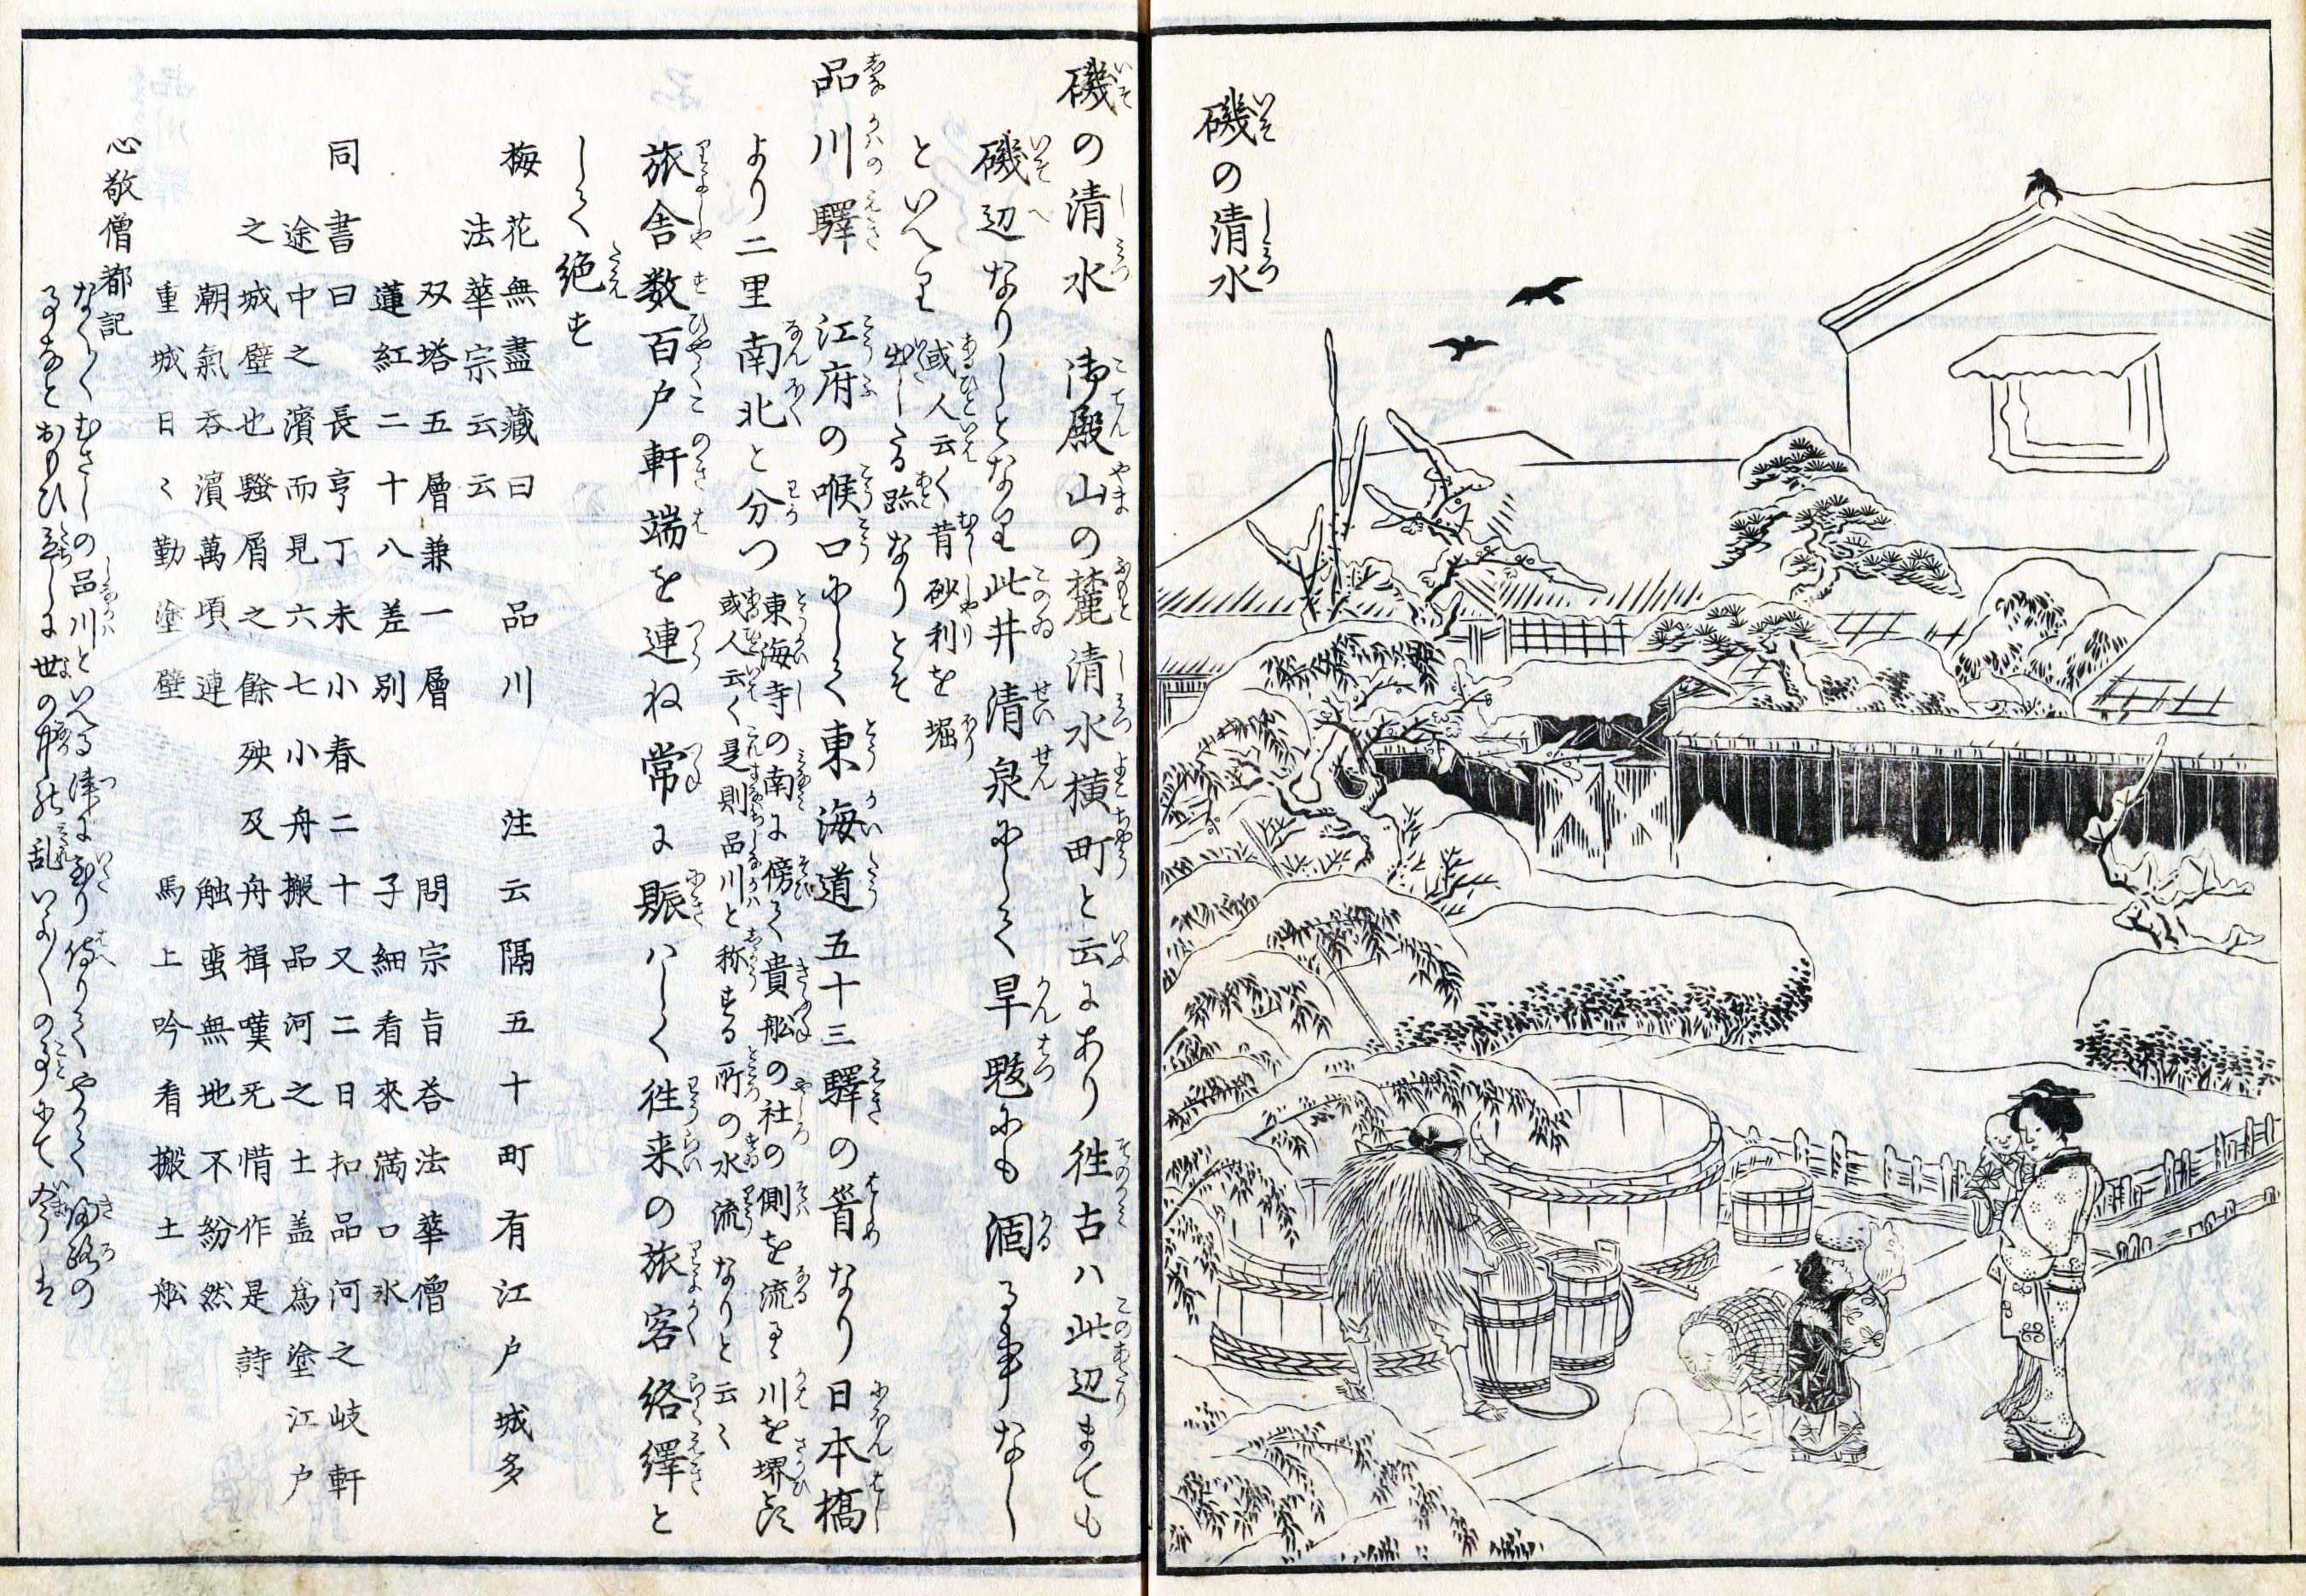 磯の清水
磯の清水　御殿山の麓清水横町と云にあり往古ハ此辺まても
磯辺なりしとなり此井清泉にして旱魃にも涸る事なし
といへり或人云く昔砂利を堀
出したる跡なりとそ
品川驛　江府の喉口にして東海道五十三驛の首なり日本橋
より二里南北と分つ東海寺の南に傍て貴船の社の側を流るゝ川を堺とす
或人云く是則品川と称する所の水流なりと云々
旅舎数百戸軒端を連ね常に賑ハしく往来の旅客絡繹と
して絶す
梅花無盡藏曰　品川　注云隔五十町有江戸城多
法華宗云云
双塔五層兼一層　問宗旨答法華僧
蓮紅二十八差別　子細看來満口氷
同書曰長亨丁未小春二十又二日扣品河之岐軒
途中之濱而見六七小舟搬品河之土盖爲塗江戸
之城壁也騒屑之餘殃及舟楫嘆旡惜作是詩
潮氣呑濱萬頃連　触蛮無地不紛然
重城日々勤塗壁　馬上吟看搬土舩
心敬僧都記
なく〱むさしの品川といへる津に至り侍りてやかて歸路の
事なとおもひ立しに世の中の乱いよ〱の事にて今ハ